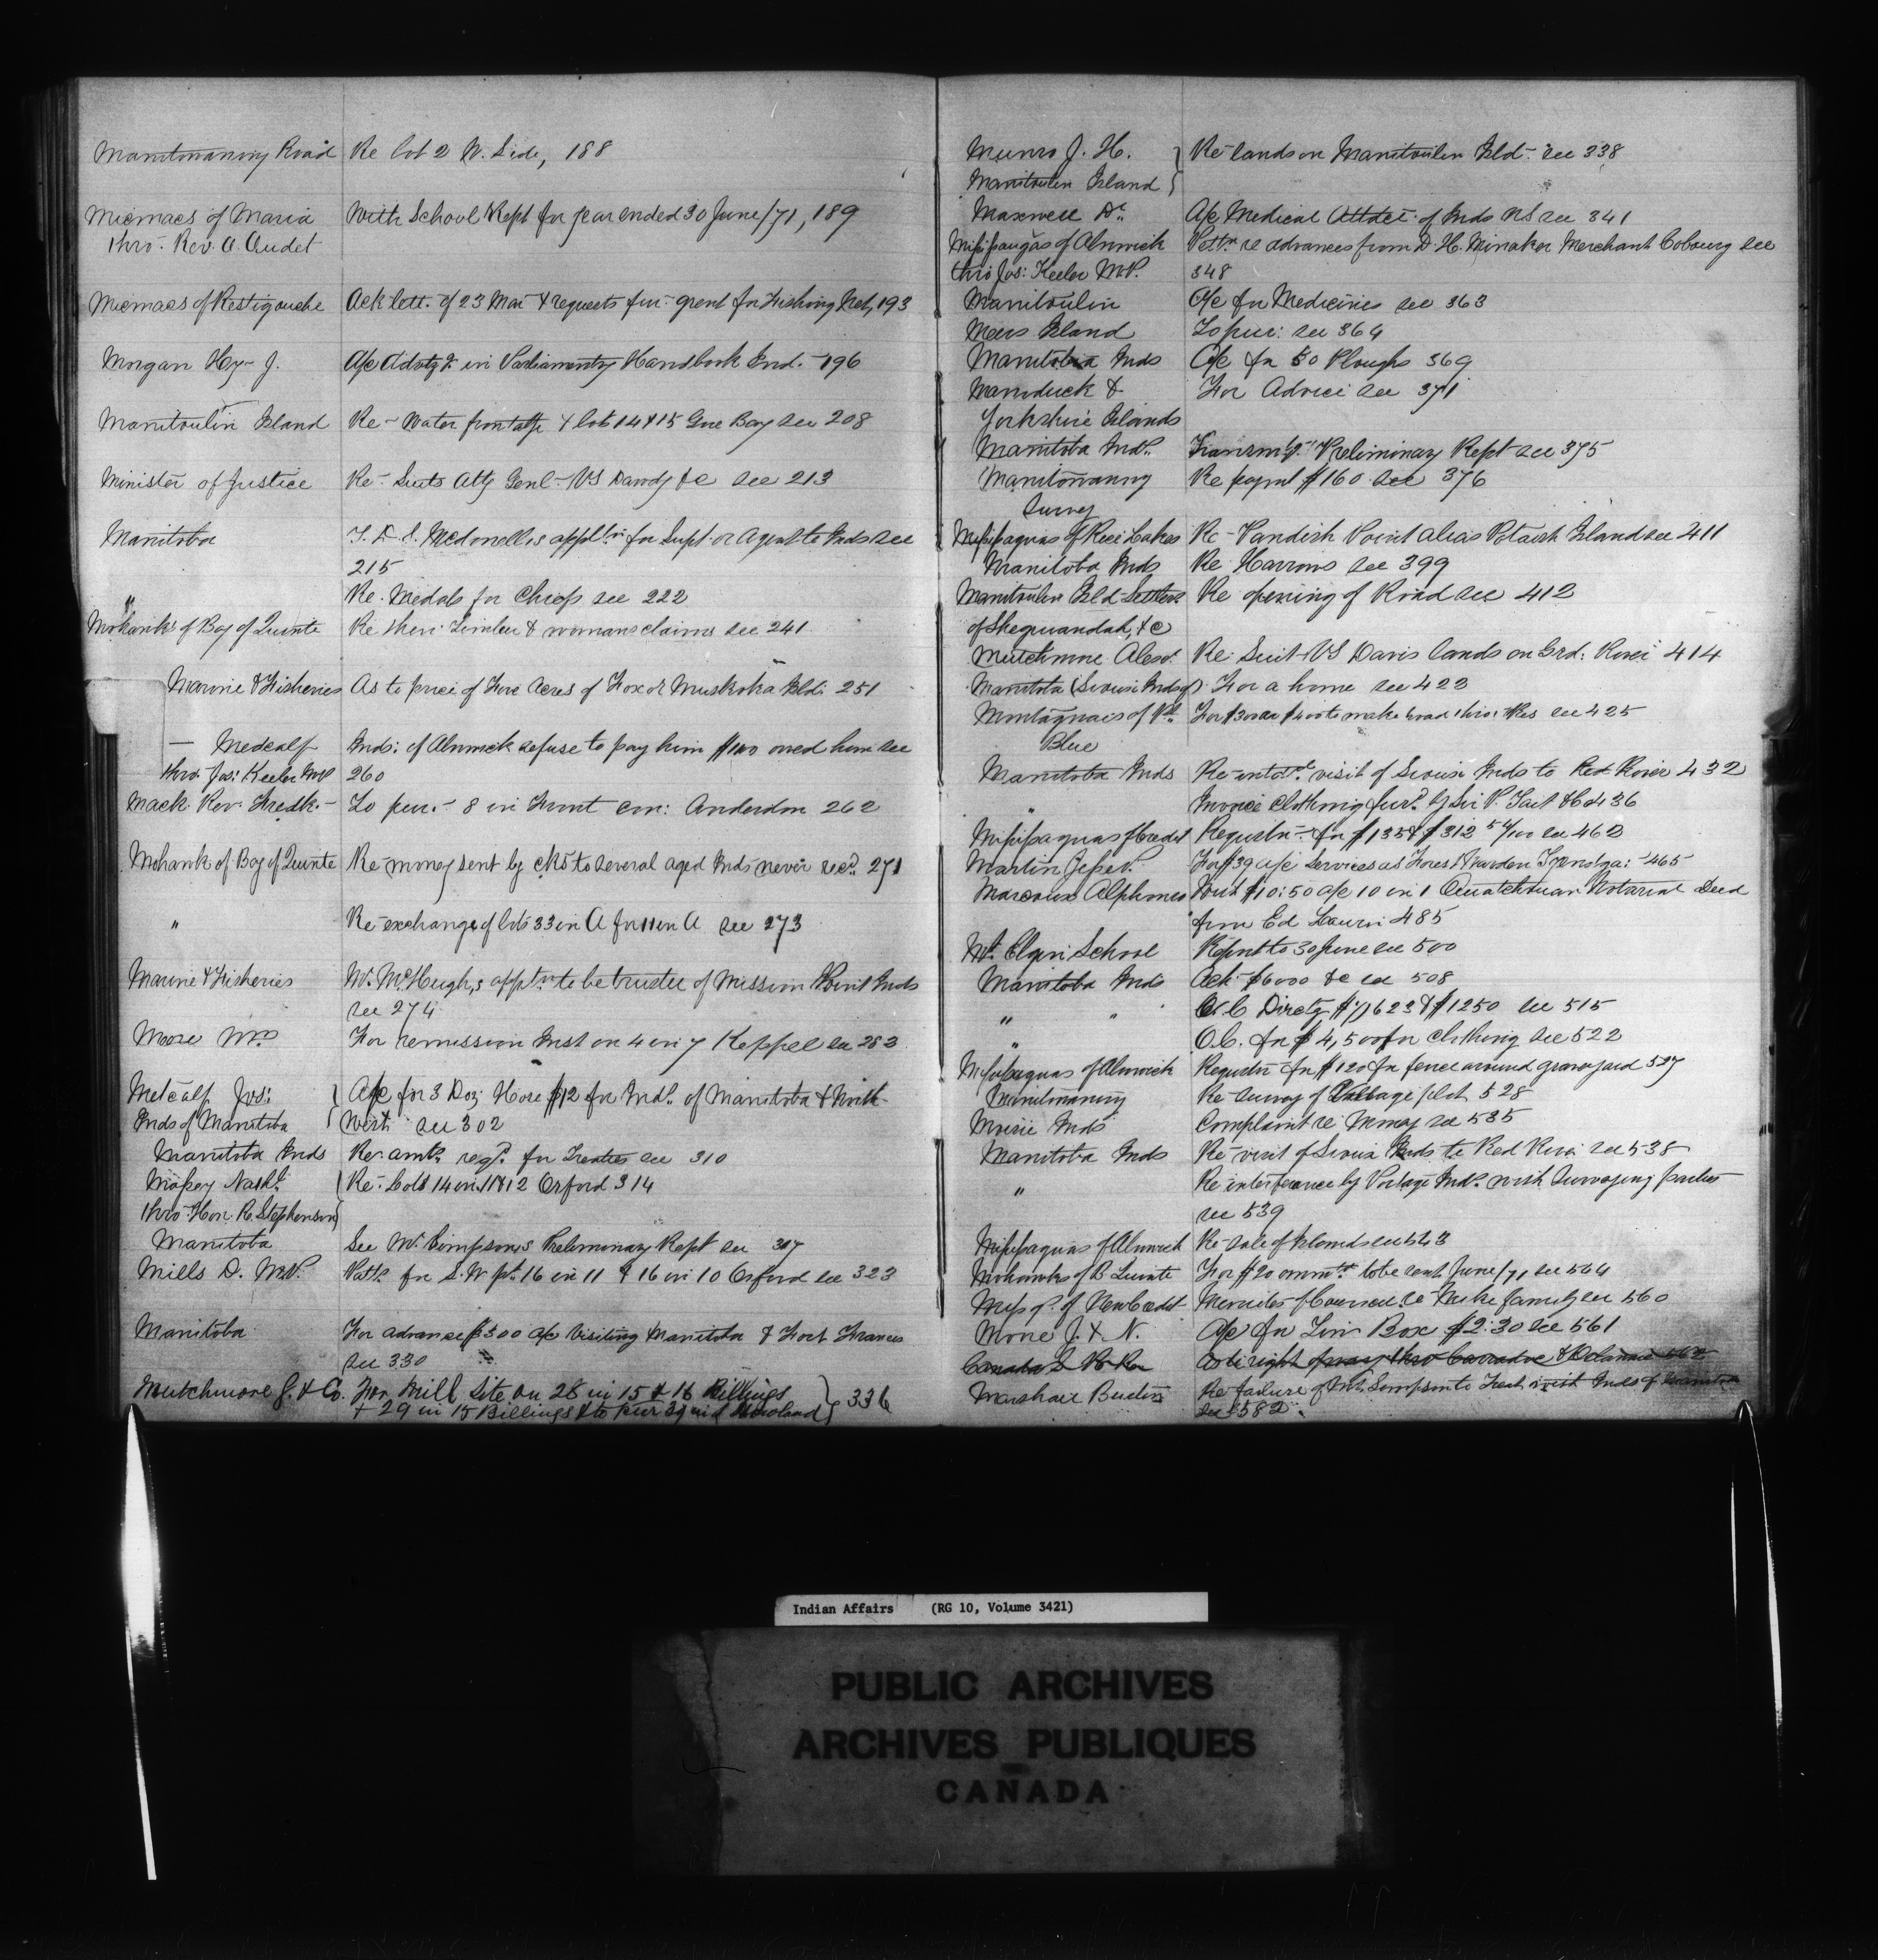 Manitowaning Road Re lot 2 W. Side, 188
Micmacs of Maria With School Rept for year ended 30 June/71, 189
thro. Rev. A. Audet
Micmacs of Restigouche Ack lett. of 23 Mar & requests fur. grant for Fishing Net, 193
Morgan Hy. J. A/c Advtg. in Parliamentry Handbook Ind. 196
Manitoulin Island Re- Water frontage lot 14 & 15 Gore Bay see 208
Minister of Justice Re- Suits Atty Genl- VS &c see 213
Manitoba McDonell's for Supt. or Agent to Inds see
215
" Re. Medals for Chiefs see 222
Mohawks of Bay of Quinte Re their Timber & womans claims see 241
Marine & Fisheries As to price of Five acres of Fox or Muskoka Isld: 251
— Medcalf Inds: of Alnwick refuse to pay him $100 owed him see
thro. Jos: Keeler MP 260
Mack Rev. Fredk.- To pur.- 8 in Front con: Anderdon 262
Mohawk of Bay of Quinte Re- money sent by cks to several aged Inds never recd. 271
" Re- exchange of lots 33 in A for 11 in A see 273
Marine & Fisheries W. McHugh,s applt to be trustee of Mission Point Inds
see 274
Moore Wm For remission Inst on 4 in 7 Keppel see 283
Metcalf Jos: A/c for 3 Doz Hoes $12 for Inds. of Manitoba & North
Inds of Manitoba West see 302
Manitoba Inds Re- amt. reqd. for Treaties see 310
Re- Lots 14 in 11 & 12 Orford 314
thro- Hon. R. Stephenson
Manitoba See Mr. Simpson's Preliminary Rept see 317
Mills D. M.P. Patt. for S. W pt. 16 in 11 & 16 in 10 Orford see 323
Manitoba For advance $500 a/c Visiting Manitoba & Fort Frances
see 330
Mutchmore J. & Co. For Mill Site on 28 in 15 & 16 Billings
& 29 in 15 Billings & to pur in Howland 336
Munro J. H. Re- lands on Manitoulin Isld- see 338
Manitoulin Island
Maxwell Dr. A/c Medical Attdce. of Inds NS see 341
Missisaugas of Alnwick Pettn. re advances from D. H. Minaker Merchant Cobourg see
thro Jos: Keeler M.P. 348
Manitoulin A/c for Medicines see 363
Island To pur: see 364
Manitoba Inds A/c for 50 Ploughs 369
Marmduck & For Advice see 371
Yorkshire Islands
Manitoba Inds. Transmtg. Preliminary Rept see 375
Manitowaning Re paymt $160 see 376
Survey
Missisaguas of Rice Lake Re- Point alias Potash Island see 411
Manitoba Inds Re Harrows see 399
Manitoulin Isld- Settlers Re opening of Road see 412
of Sheguiandah, &c
Mutchmore Alexr. Re: Suit VS Davis lands on Grd: River 414
Manitoba (Sioux Inds of) For a home see 423
Montagnais of Pte For $300 or $400 to make road thro: Res see 425
Blue
Manitoba Inds Re- intdd. visit of Sioux Inds to Red River 432
" Invoice Clothing furd. by Sir P. Tait &Co 436
Missisaguas of Credit Requstn- for $135 & $312 54/100 see 462
Martin Jesse. For $39 a/c Services as Forest Warden Tyendga: 465
Alphonse With $10:50 a/c 10 in 1 Ouiatchouan Notarial Deed
from Ed 485
Mt. Elgin School Report to 30 June see 500
Manitoba Inds Ack- $6000 &c see 508
" " O.C Dirctg $ 623 & $1250 see 515
" O.C. for $4,500 for Clothing see 522
Missisaguas of Alnwick Requstn for $120 for fence around graveyard 527
Manitowaning Re- survey of Village plot 528
Moisie Inds Complaint re Money see 535
Manitoba Inds Re- visit of Sioux Inds to Red River see 538
" Re- interference by Portage Inds. with Surveying parties
see 539
Missisaguas of Alnwick Re- sale of Islands see 543
Mohawks of B Quinte For $20 to be sent June/71 see 564
Missgs. of New Credit Minutes of Council re family see 560
Morse J. & N. A/c for Tin Box $2:30 see 561
Canada S. As to right of way thro Caradoc & 562
Marshall Re- failure of Mr. Simpson to Treat with Inds of
see 582
Indian Affairs (RG 10, Volume 3421)
PUBLIC ARCHIVES
ARCHIVES PUBLIQUES
CANADA